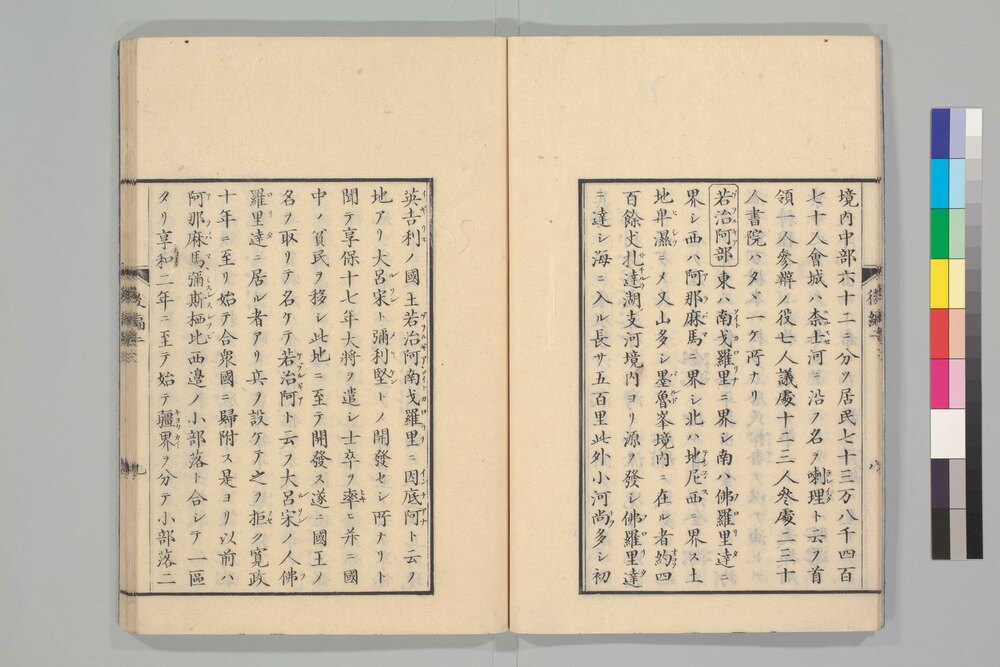 境内中部六十二ニ分ツ居民七十三万八千四百
七十人會城ハ柰士河ニ沿フ名ヲ喇理ト云フ首
領一人參辦ノ役七人議處十二三人參處二三十
人書院ハタヾ一ケ所ナリ
若治阿部 東ハ南戈羅里ニ界シ南ハ佛羅里達ニ
界シ西ハ阿那麻馬ニ界シ北ハ地尼西ニ界ス土
地卑濕ニメ又山多シ墨魯峯境内ニ在ル者約四
百餘丈扎達湖支河境内ヨリ源ヲ發シ佛羅里達
ニ達シ海ニ入ル長サ五百里此外小河尚多シ初
後編二 八
英吉利ノ國王若治阿南戈羅里ニ因底阿ト云ノ
地アリ大呂宋ト彌利堅トノ開發セシ所ナリト
聞テ享保十七年大將ヲ遣シ士卒ヲ率ヒ并ニ國
中ノ貧民ヲ移シ此地ニ至テ開發ス遂ニ國王ノ
名ヲ取リテ名ケテ若治阿ト云フ大呂宋ノ人佛
羅里達ニ居ル者アリ兵ヲ設ケテ之ヲ拒ク寛政
十年ニ至リ始テ合衆國ニ歸附ス是ヨリ以前ハ
阿那麻馬彌斯栖比西邊ノ小部落ト合シテ一區
タリ享和二年ニ至テ始テ疆界ヲ分テ小部落二
後編二 九